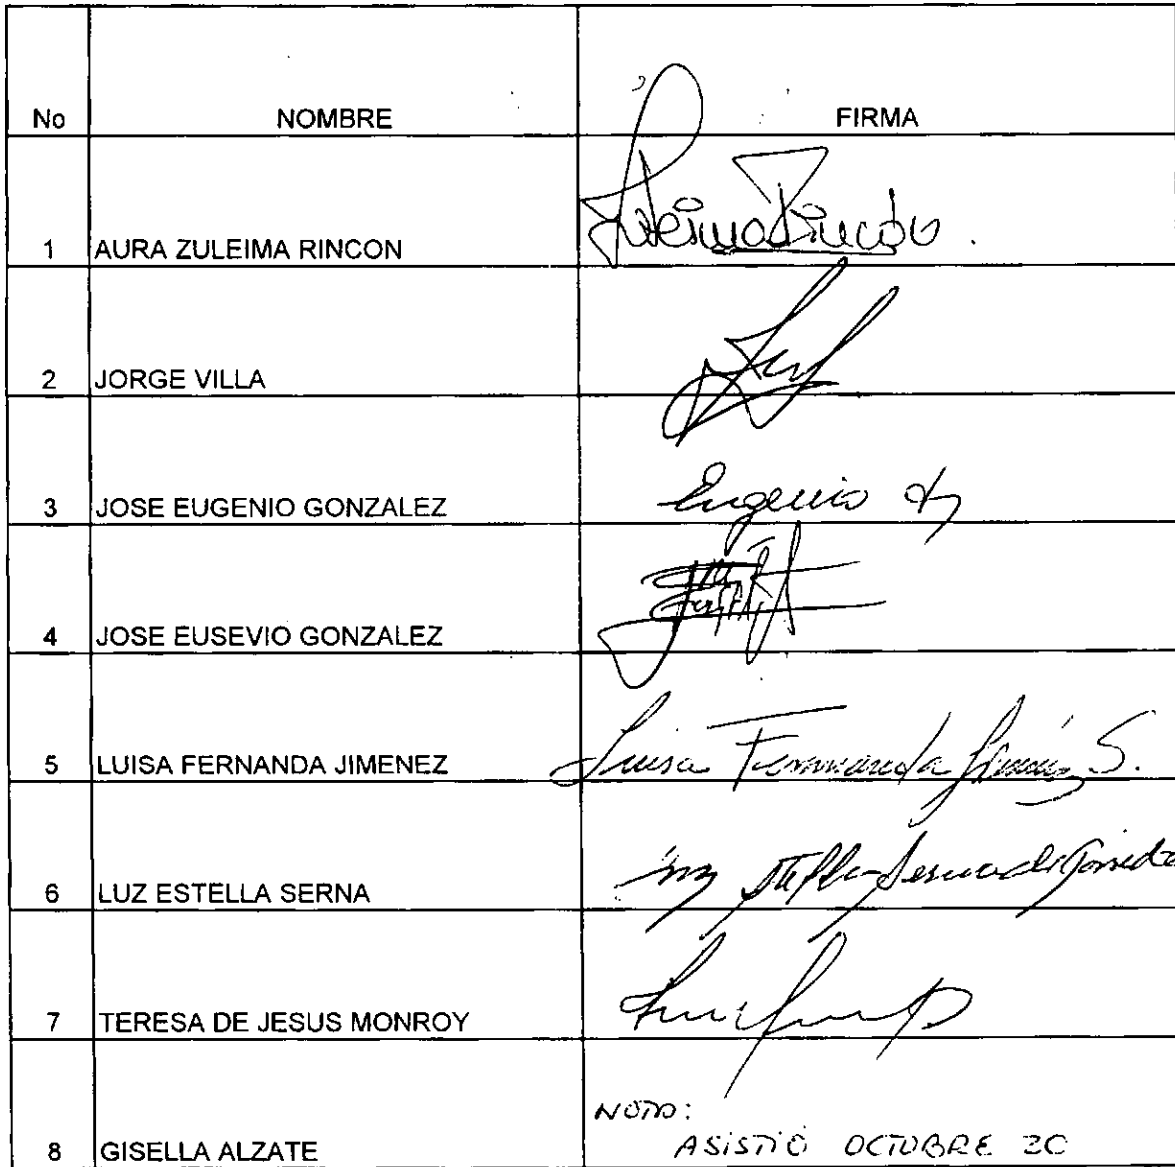 No NOMBRE FIRMA
1 AURA ZULEIMA RINCON Zuleima Rincón.
2 JORGE VILLA
3 JOSE EUGENIO GONZALEZ Eugenio
4 JOSE EUSEVIO GONZALEZ
5 LUISA FERNANDA JIMENEZ Luisa Fernanda Jiménez S.
6 LUZ ESTELLA SERNA Luz Stella Serna de
7 TERESA DE JESUS MONROY
NOTA:
8 GISELLA ALZATE ASISTIÓ OCTUBRE 20